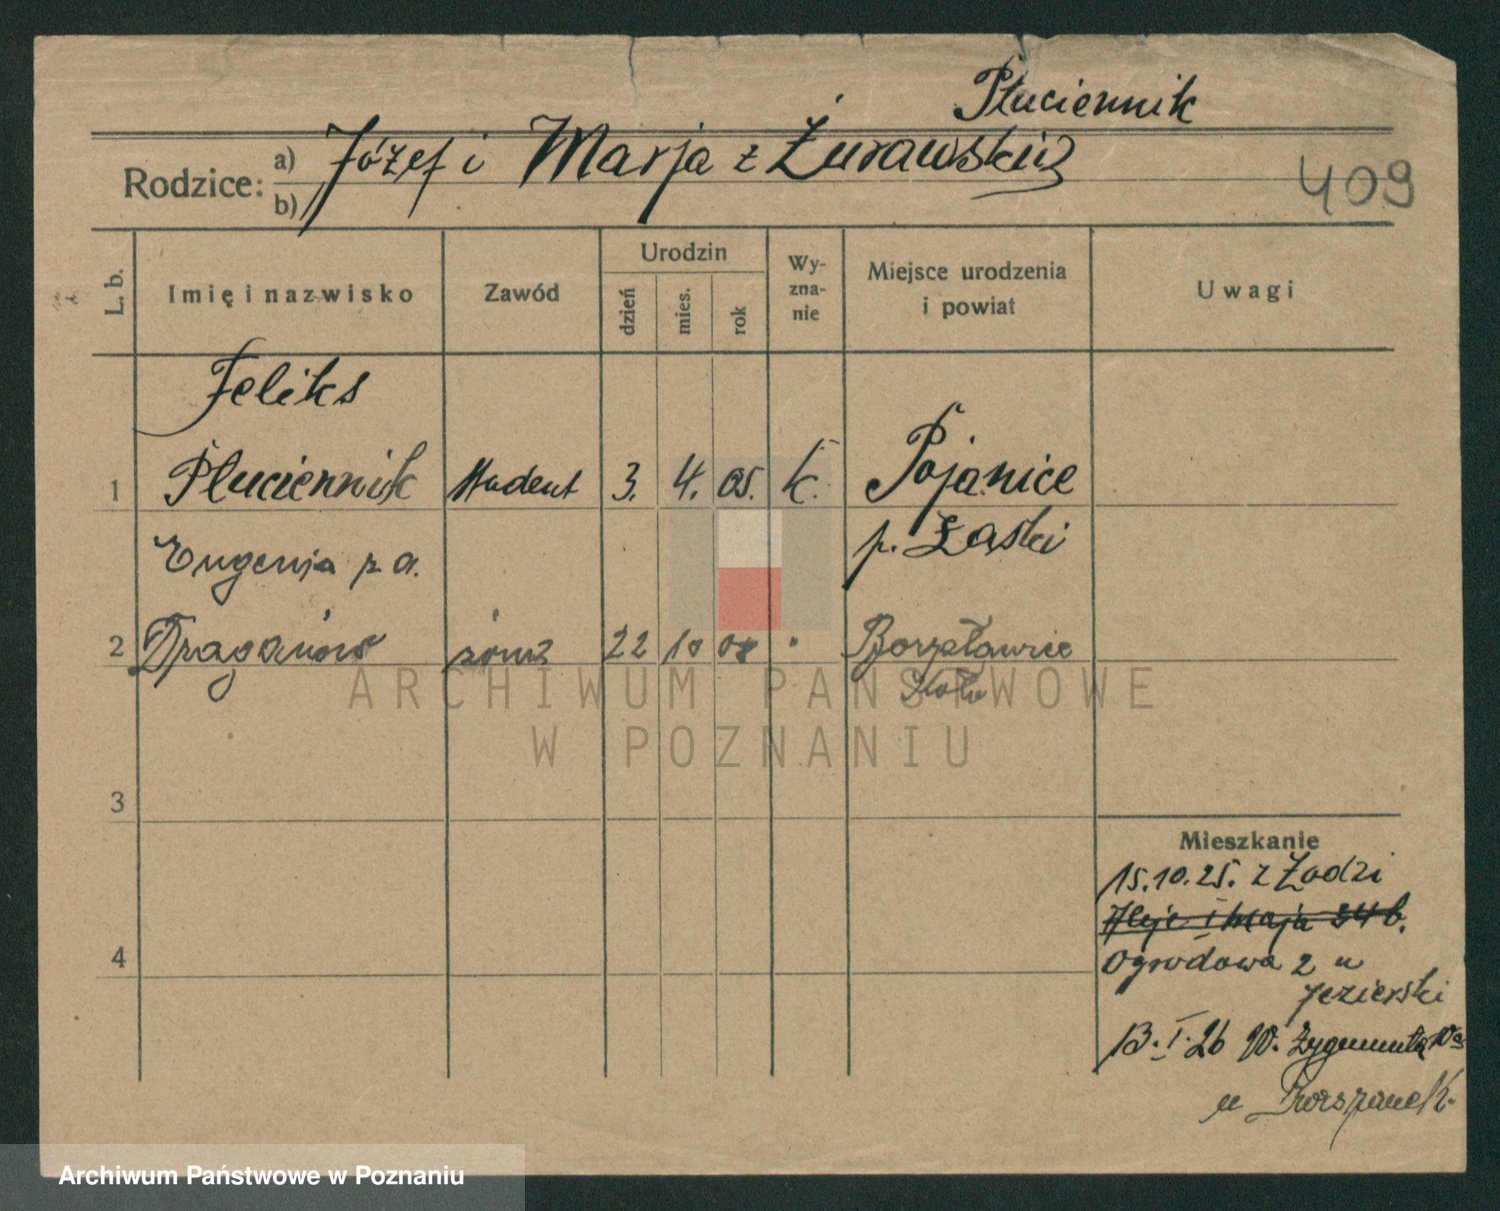 Płuciennik
Rodzice: a) Józef i Marja z Żurawskich
b)
409
L. b.
Imię i nazwisko
Zawód
Urodzin
dzień
mies.
rok
Wy-
zna-
nie
Miejsce urodzenia
i powiat
Uwagi
Feliks
1 Płuciennik student 3. 4. 05. k. Pojanice
p. Łaski
Eugenja z d.
2 żona 22 10 08 "
Koło
ARCHIWUM PAŃSTWOWE
W POZNANIU
3
Mieszkanie
15.10.25. z Łodzi
Aleje 1 Maja 34 b.
4
Ogrodowa 2 u
Jezierski
13.I.26 W. Zygmunta
u
Archiwum Państwowe w Poznaniu